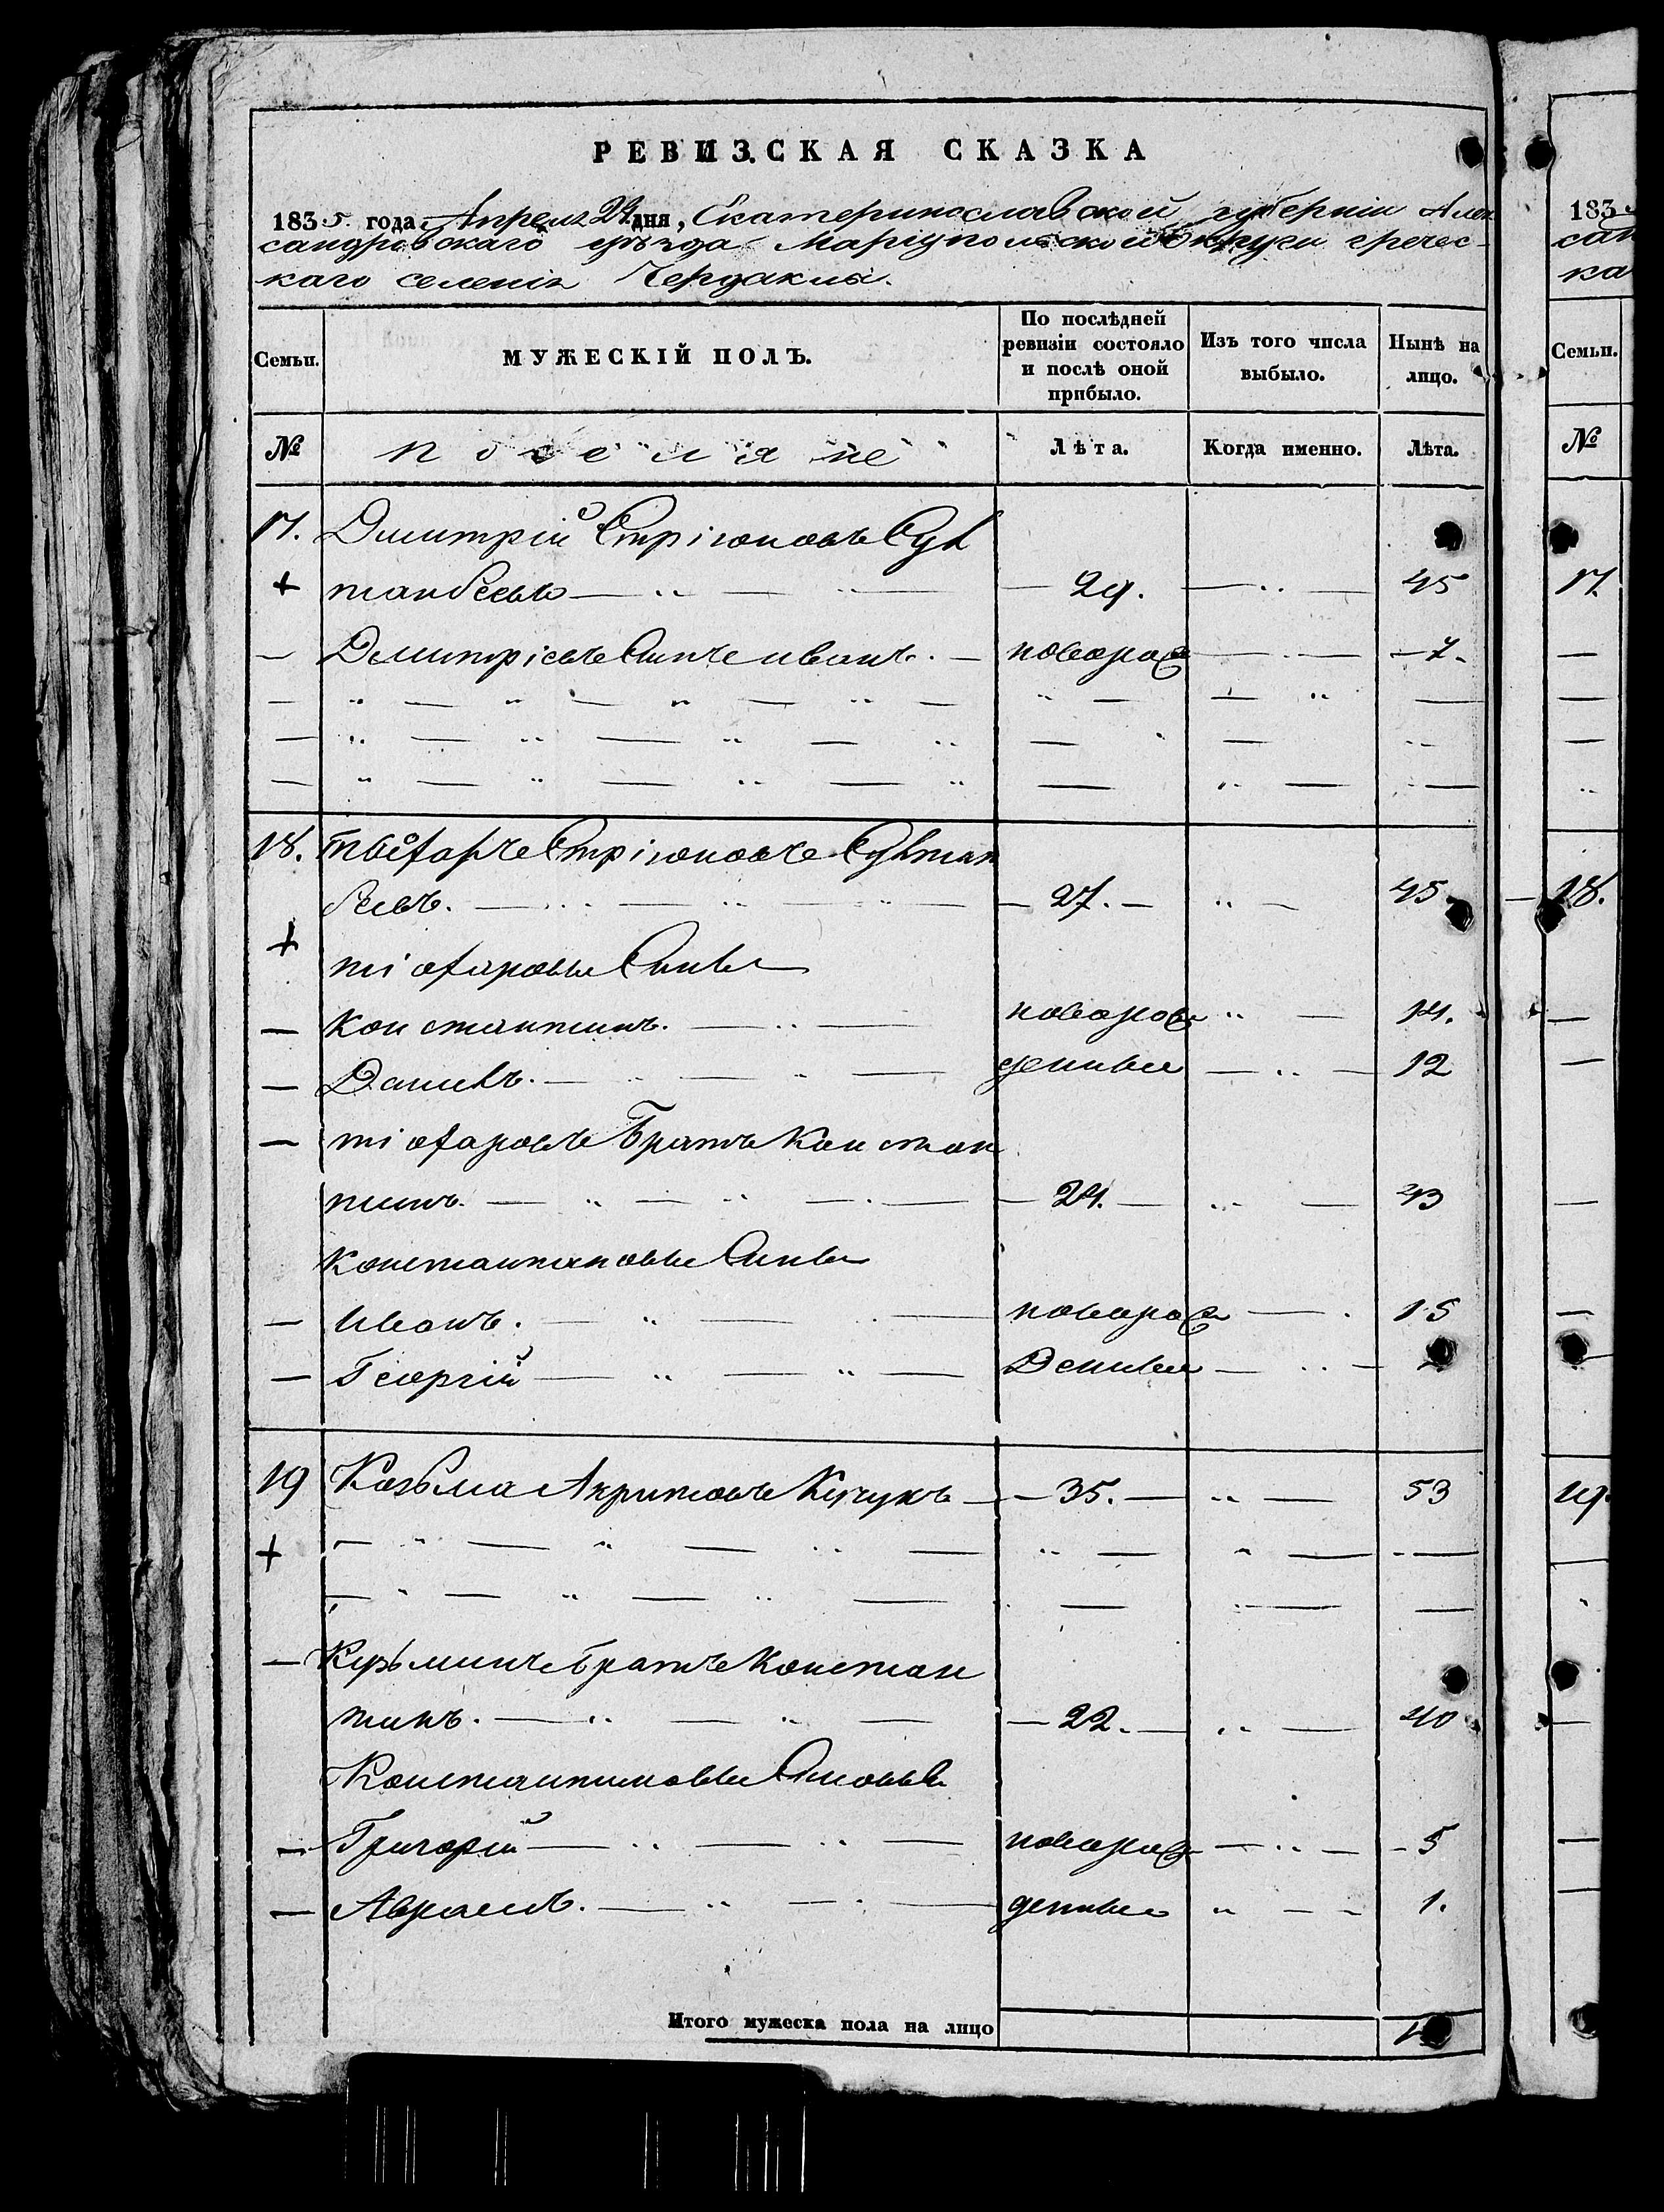 РЕВИЗСКАЯ СКАЗКА
1835 года Апреля 24 дня, Екатеринославской губерніи Алек
сандровскаго уѣзда Маріупольской округи гречес-
каго селенія Чердаклы.
Семьи. МУЖЕСКІЙ ПОЛЪ. По послѣдней ревизіи состояло и послѣ оной прибыло. Изъ того числа выбыло. Нынѣ на лицо.
№ поселяне Лѣта. Когда именно. Лѣта.
17. Дмитрій Стріоновъ Сул
+ танбеевъ 29. 45
Дмитріевъ Сынъ иванъ. новорож 7.
18. Стріоновъ Султан
беевъ. 27. 45
+ Сыны
константинъ. новорож 14.
Данилъ. денные 12
Братъ Констан
тинъ. 24. 43
Константиновы Сыны
иванъ. новорож 15
Георгій Денные
19 Козьма Акритовъ Кучукъ 35. 53
+
Кузьминъ братъ констан
тинъ. 22. 40
Константиновы Сыновья
Григорій новорож 5
Авраамъ. денные 1.
Итого мужеска пола на лицо
183
сан
ка
Семьи.
№
17.
18.
19.